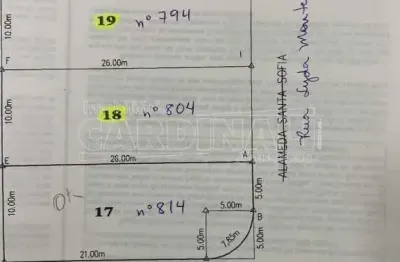 10.00m
19 nº 794
F
26.00m
I
ALAMEDA SANTA SOFIA
Rua Lyda Monte
10.00m
18 nº 804
CARDINALI
E
26.00m
A
10.00m
17 nº 814
5.00m
5.00m
B
5.00m
7.85m
5.00m
21.00m